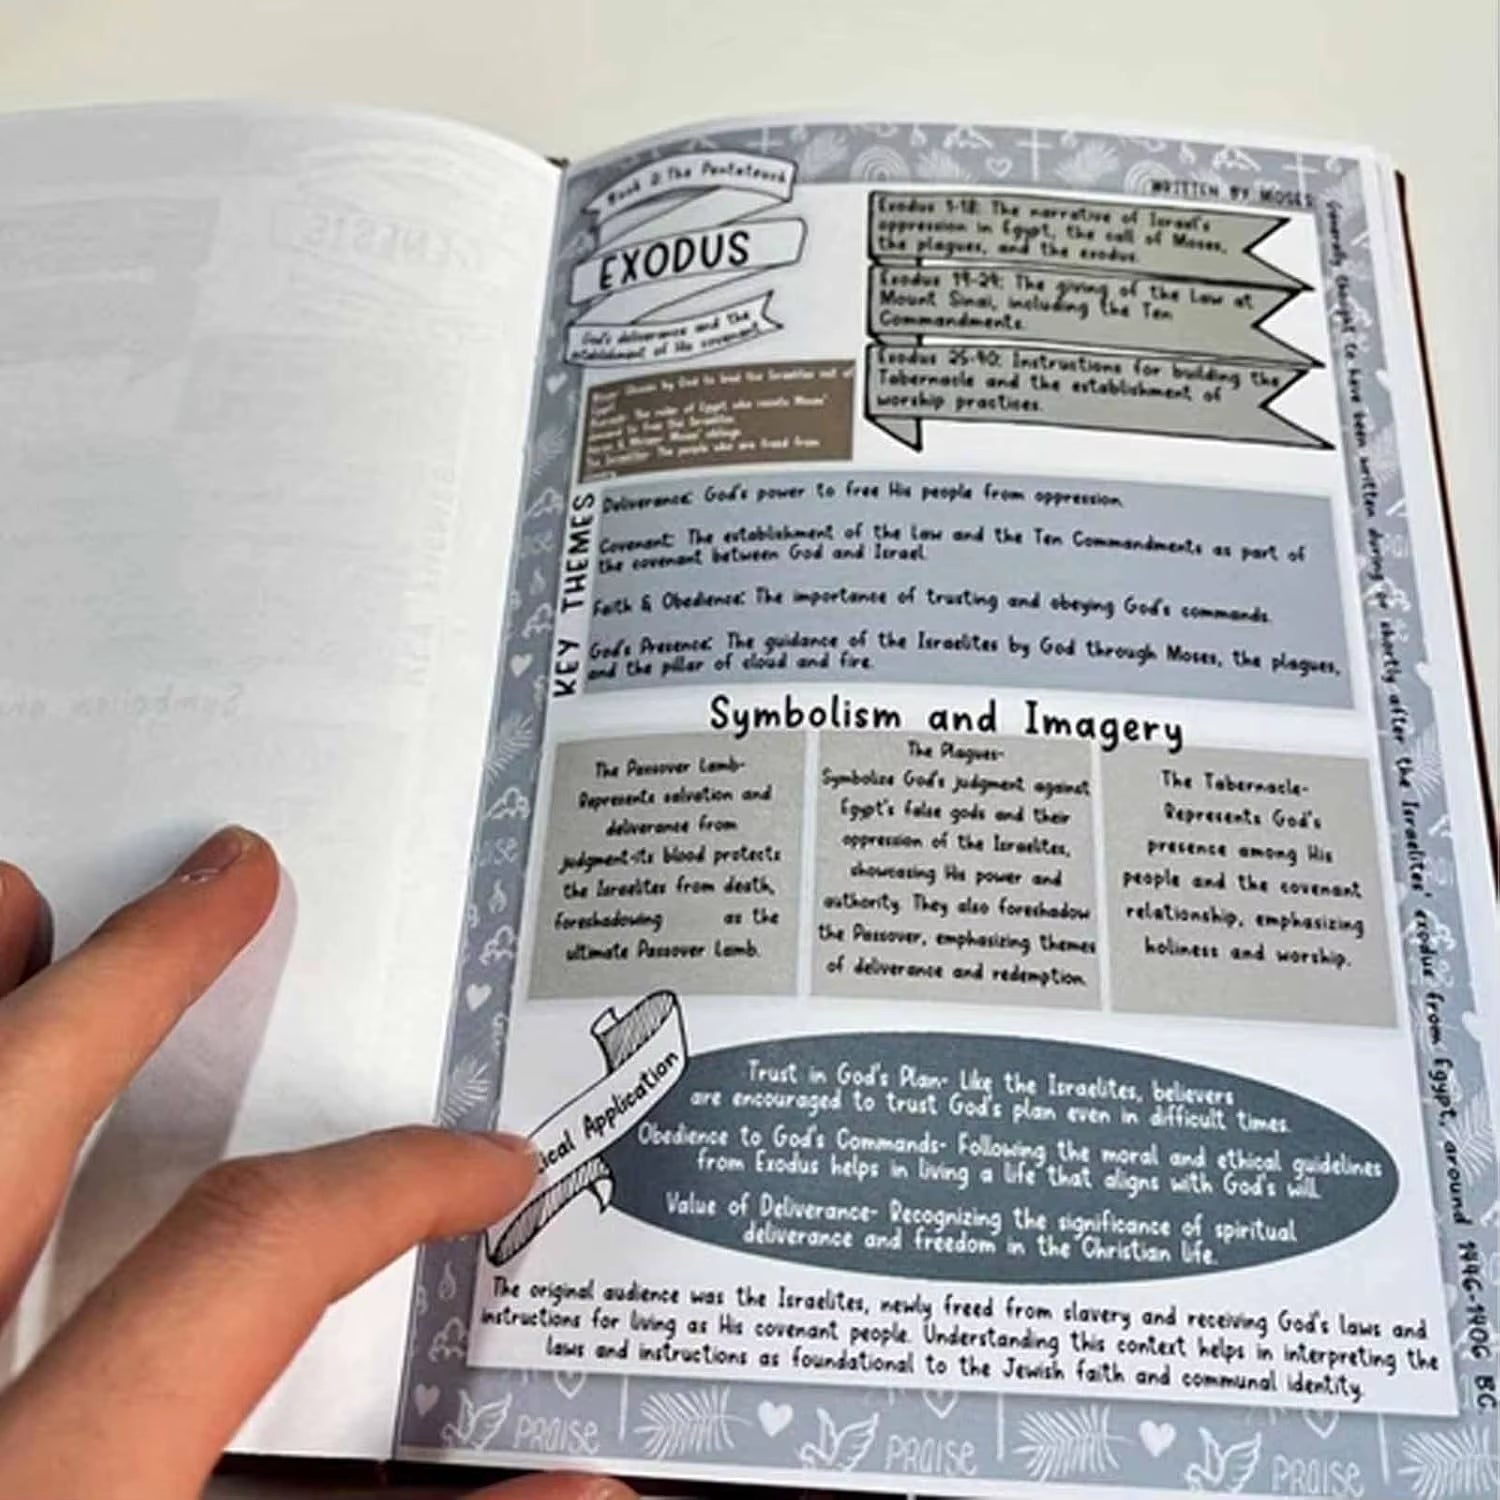 Book 2: The Pentateuch
EXODUS
God's deliverance and the
establishment of His covenant
WRITTEN BY MOSES
Exodus 1-18: The narrative of Israel's
oppression in Egypt, the call of Moses,
the plagues, and the exodus.
Exodus 19-24: The giving of the Law at
Mount Sinai, including the Ten
Commandments.
Exodus 25-40: Instructions for building the
Tabernacle and the establishment of
worship practices.
Moses: Chosen by God to lead the Israelites out of
Egypt.
Pharaoh: The ruler of Egypt who resists Moses'
demand to free the Israelites.
Aaron & Miriam: Moses' siblings.
The Israelites: The people who are freed from
KEY THEMES
Deliverance: God's power to free His people from oppression.
Covenant: The establishment of the law and the Ten Commandments as part of
the covenant between God and Israel.
Faith & Obedience: The importance of trusting and obeying God's commands.
God's Presence: The guidance of the Israelites by God through Moses, the plagues,
and the pillar of cloud and fire.
Symbolism and Imagery
The Passover Lamb-
Represents salvation and
deliverance from
judgment-its blood protects
the Israelites from death,
foreshadowing as the
ultimate Passover Lamb.
The Plagues-
Symbolize God's judgment against
Egypt's false gods and their
oppression of the Israelites,
showcasing His power and
authority. They also foreshadow
the Passover, emphasizing themes
of deliverance and redemption.
The Tabernacle-
Represents God's
presence among His
people and the covenant
relationship, emphasizing
holiness and worship.
ical Application
Trust in God's Plan- Like the Israelites, believers
are encouraged to trust God's plan even in difficult times.
Obedience to God's Commands- Following the moral and ethical guidelines
from Exodus helps in living a life that aligns with God's will.
Value of Deliverance- Recognizing the significance of spiritual
deliverance and freedom in the Christian life.
The original audience was the Israelites, newly freed from slavery and receiving God's laws and
instructions for living as His covenant people. Understanding this context helps in interpreting the
laws and instructions as foundational to the Jewish faith and communal identity.
Generally thought to have been written during or shortly after the Israelites' exodus from Egypt, around 1446-1406 BC.
PRAISE
PRAISE
PRAISE